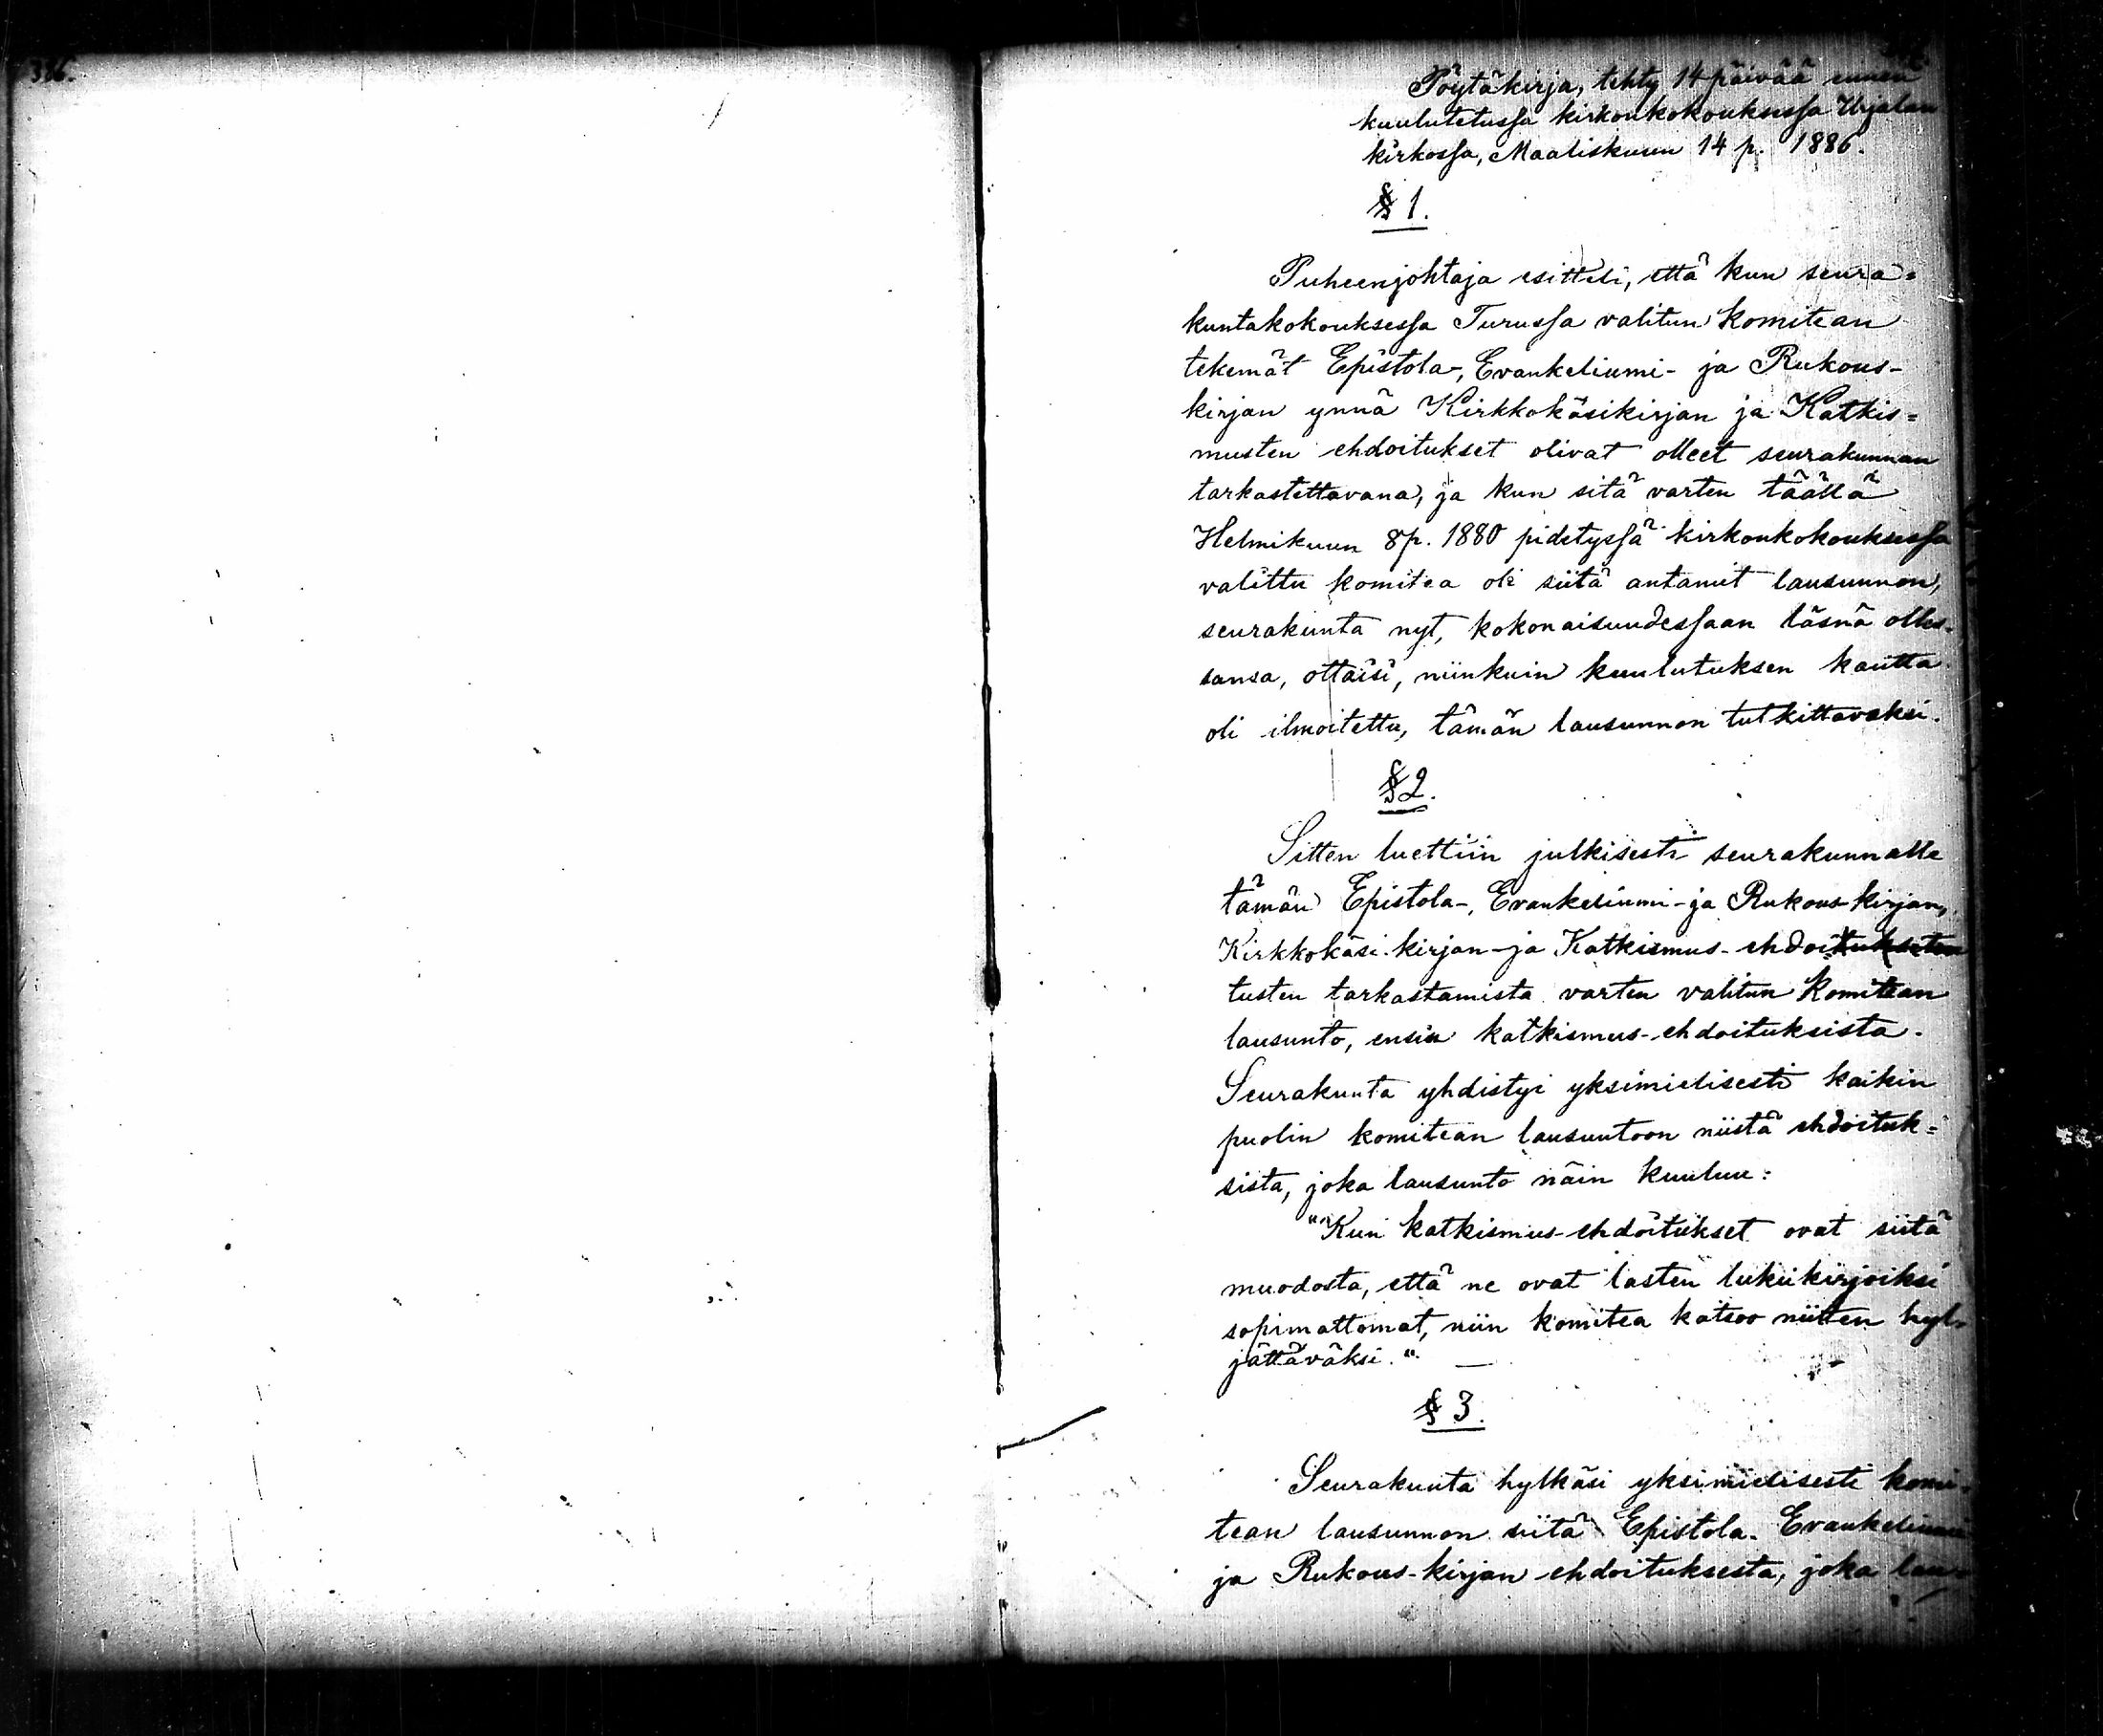 386.
Pöytäkirja, tehty 14 päivää ennen
kuulutetussa kirkonkokouksessa Urjalan
kirkossa, Maaliskuun 14 p. 1886.
§ 1.
Puheenjohtaja esitteli, että kun seura=
kuntakokouksessa Turussa valitun komitean
tekemät Epistola-, Evankeliumi- ja Rukous-
kirjan ynnä Kirkkokäsikirjan ja Katkis=
musten ehdoitukset olivat olleet seurakunnan
tarkastettavana, ja kun sitä varten täällä
Helmikuun 8 p. 1880 pidetyssä kirkonkokouksessa
valittu komitea oli siitä antanut lausunnon,
seurakunta nyt, kokonaisuudessaan läsnä olles=
sansa, ottaisi, niinkuin kuulutuksen kautta
oli ilmoitettu, tämän lausunnon tutkittavaksi.
§ 2.
Sitten luettiin julkisesti seurakunnalle
tämän Epistola-, Evankeliumi- ja Rukous-kirjan,
Kirkkokäsi-kirjan- ja Katkismus-ehdoituksten
tusten tarkastamista varten valitun komitean
lausunto, ensin katkismus-ehdoituksista.
Seurakunta yhdistyi yksimielisesti kaikin
puolin komitean lausuntoon niistä ehdoituk=
sista, joka lausunto näin kuuluu:
"Kun katkismus-ehdoitukset ovat siitä
muodosta, että ne ovat lasten lukukirjoiksi
sopimattomat, niin komitea katsoo niitten hyl=
jättäväksi." —
§ 3.
Seurakunta hylkäsi yksimielisesti komi=
tean lausunnon siitä Epistola- Evankeliumi
ja Rukous-kirjan ehdoituksesta, joka lau=